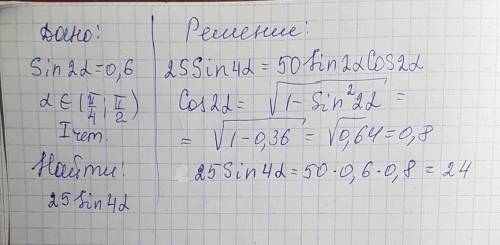 Дано:
Sin2α=0,6
α∈(π/4; π/2)
I чет.
Найти:
25Sin4α
Решение:
25Sin4α = 50Sin2αCos2α
Cos2α = √1-Sin²2α =
= √1-0,36 = √0,64 = 0,8
25Sin4α = 50·0,6·0,8 = 24